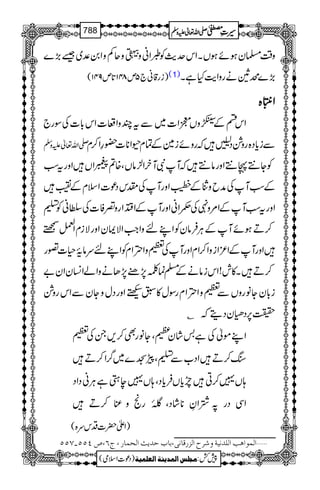 سیرتِ مصطفی صلی اللہ تعالیٰ علیہ وسلم 788
وقت مسلمان ہوئے ہوں۔ اس حدیث کو طبرانی و بیہقی و حاکم و ابن عدی جیسے بڑے
بڑے محدثین نے روایت کیا ہے۔(1) (زرقانی ج۵ ص۱۴۸ تا ص۱۴۹)
انتباہ
اس قسم کے سینکڑوں معجزات میں سے یہ چند واقعات اس بات کی سورج
سے زیادہ روشن دلیلیں ہیں کہ روئے زمین کے تمام حیوانات حضور اکرم صلی اللہ تعالیٰ علیہ وسلم
کو جانتے پہچانتے اور مانتے ہیں کہ آپ نبی آخر الزماں، خاتم پیغمبراں ہیں اور یہ سب
آپ کی مدح و ثنا کے خطیب اور آپ کی مقدس دعوت اسلام کے نقیب ہیں
اور یہ سب آپ کے امر و نہی کی حکمرانی اور آپ کے اقتدار و تصرفات کی سلطانی کو تسلیم
کرتے ہوئے آپ کے ہر فرمان کو اپنے لئے واجب الایمان اور لازم العمل سمجھتے
ہیں اور آپ کے اعزاز و اکرام اور آپ کی تعظیم و احترام کو اپنے لئے سرمایۂ حیات تصور
کرتے ہیں۔ کاش! اس زمانے کے مسلم نما کلمہ پڑھنے پڑھانے والے انسان ان بے
زبان جانوروں سے تعظیم و احترام رسول کا سبق سیکھتے اور دل و جان سے اس روشن
حقیقت پر دھیان دیتے کہ ؎
اپنے مولیٰ کی ہے بس شان عظیم، جانور بھی کریں جن کی تعظیم
سنگ کرتے ہیں ادب سے تسلیم، پیڑ سجدے میں گرا کرتے ہیں
ہاں یہیں کرتی ہیں چڑیاں فریاد، ہاں یہیں چاہتی ہے ہرنی داد
اسی در پہ شترانِ ناشاد، گلۂ رنج و عنا کرتے ہیں
(اعلیٰ حضرت قدس سرہ)
......المواهب اللدنية وشرح الزرقانی،باب حديث الحمار، ج٦،ص٥٥٤-٥٥٧
پیش کش: مجلس المدينة العلمية (دعوتِ اسلامی)